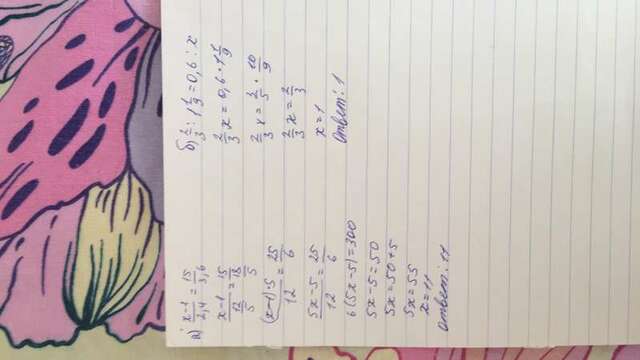 а) (x-1)/2,4 = 15/3,6
(x-1)/(12/5) = 15/(18/5)
((x-1)·5)/12 = 25/6
(5x-5)/12 = 25/6
6(5x-5)=300
5x-5=50
5x=50+5
5x=55
x=11
ответ: 11
б) 2/3 : 1 1/9 = 0,6 : x
2/3 x = 0,6 · 1 1/9
2/3 x = 3/5 · 10/9
2/3 x = 2/3
x=1
ответ: 1